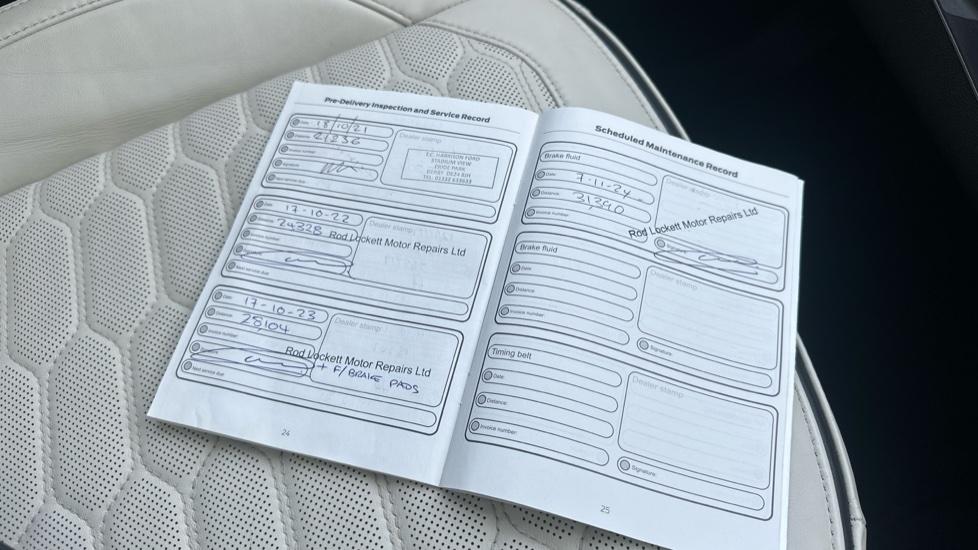 Pre-Delivery Inspection and Service Record
Date: 18/10/21
Distance: 21236
Invoice number:
Signature:
Next service due:
Dealer stamp
T.C. HARRISON FORD
STADIUM VIEW
PRIDE PARK
DERBY DE24 8JH
Date: 17-10-22
Distance: 24328
Invoice number:
Next service due:
Dealer stamp
Rod Lockett Motor Repairs Ltd
Date: 17-10-23
Distance: 28104
Invoice number:
Signature:
Next service due:
Dealer stamp
Rod Lockett Motor Repairs Ltd
+ F/BRAKE PADS
24
Scheduled Maintenance Record
Brake fluid
Date: 7-11-24
Distance: 31,390
Invoice number:
Dealer stamp
Rod Lockett Motor Repairs Ltd
Signature:
Brake fluid
Date:
Distance:
Invoice number:
Dealer stamp
Signature:
Timing belt
Date:
Distance:
Invoice number:
Dealer stamp
Signature:
25